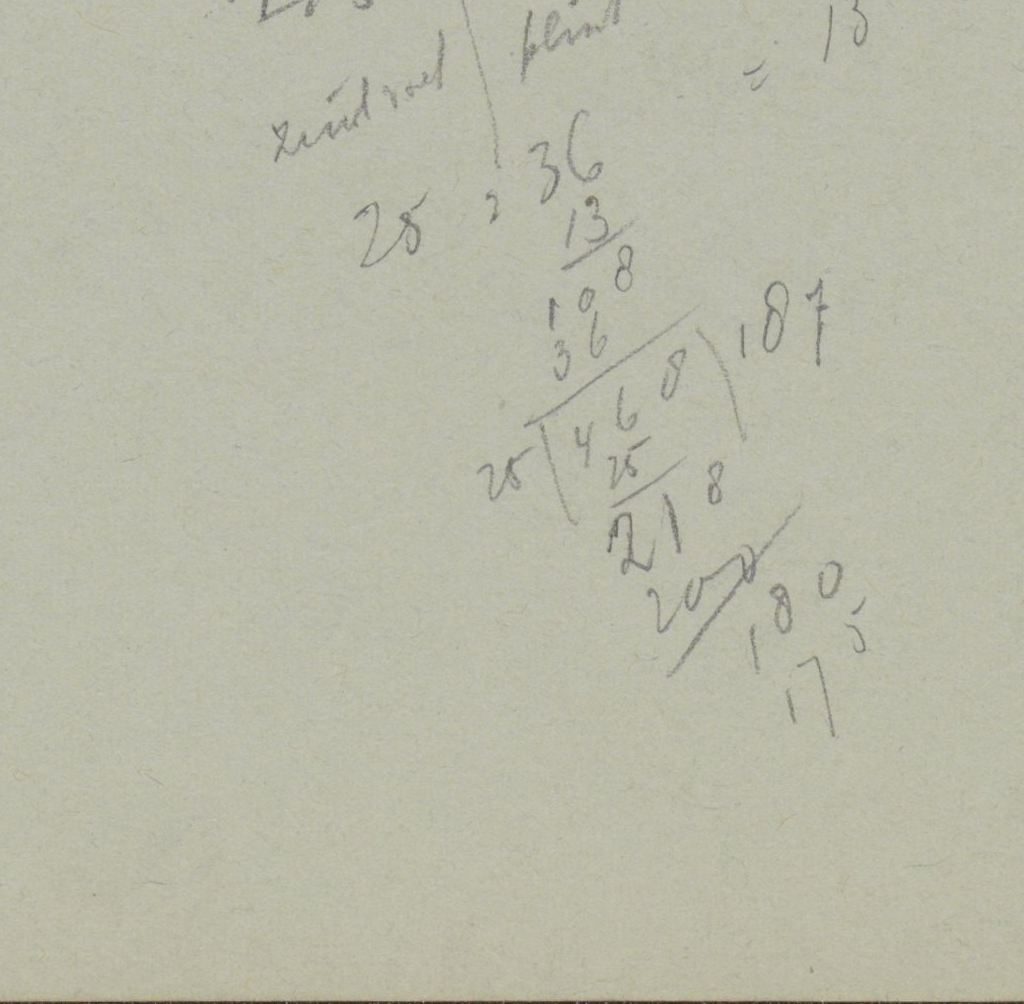 = 13
25 : 36
13
108
36
25 ( 468 ) 187
25
218
200
180
175